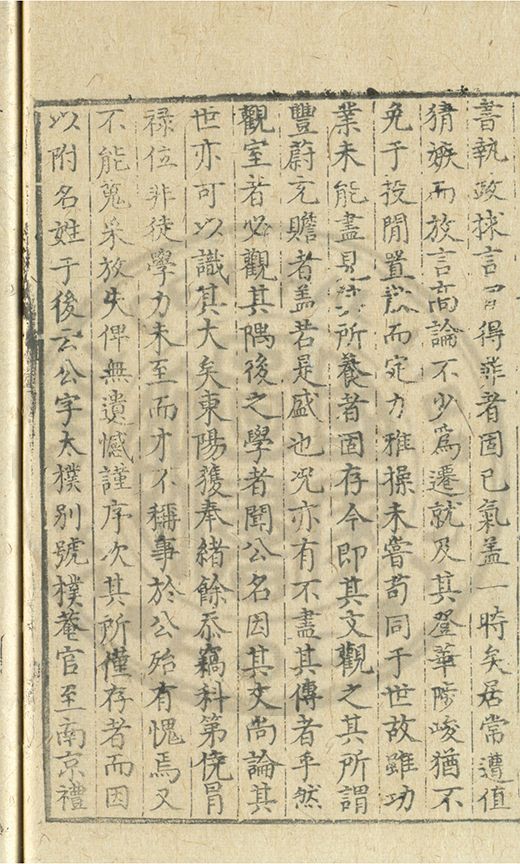 書執政採言習得非者固已氣盖一時矣居常遭值
猜嫉而放言高論不少爲遷就及其登華陟峻猶不
免于投閒置散而定力雅操未嘗苟同于世故雖功
業未能盡見所養者固存今即其文觀之其所謂
豐蔚充贍者盖若是盛也况亦有不盡其傳者乎然
觀室者必觀其隅後之學者聞公名因其文尚論其
世亦可以識其大矣東陽獲奉緒餘忝竊科第僥冒
禄位非徒學力未至而才不稱事於公殆有愧焉又
不能蒐采放失俾無遺憾謹序次其所僅存者而因
以附名姓于後云公字大樸别號樸菴官至南京禮